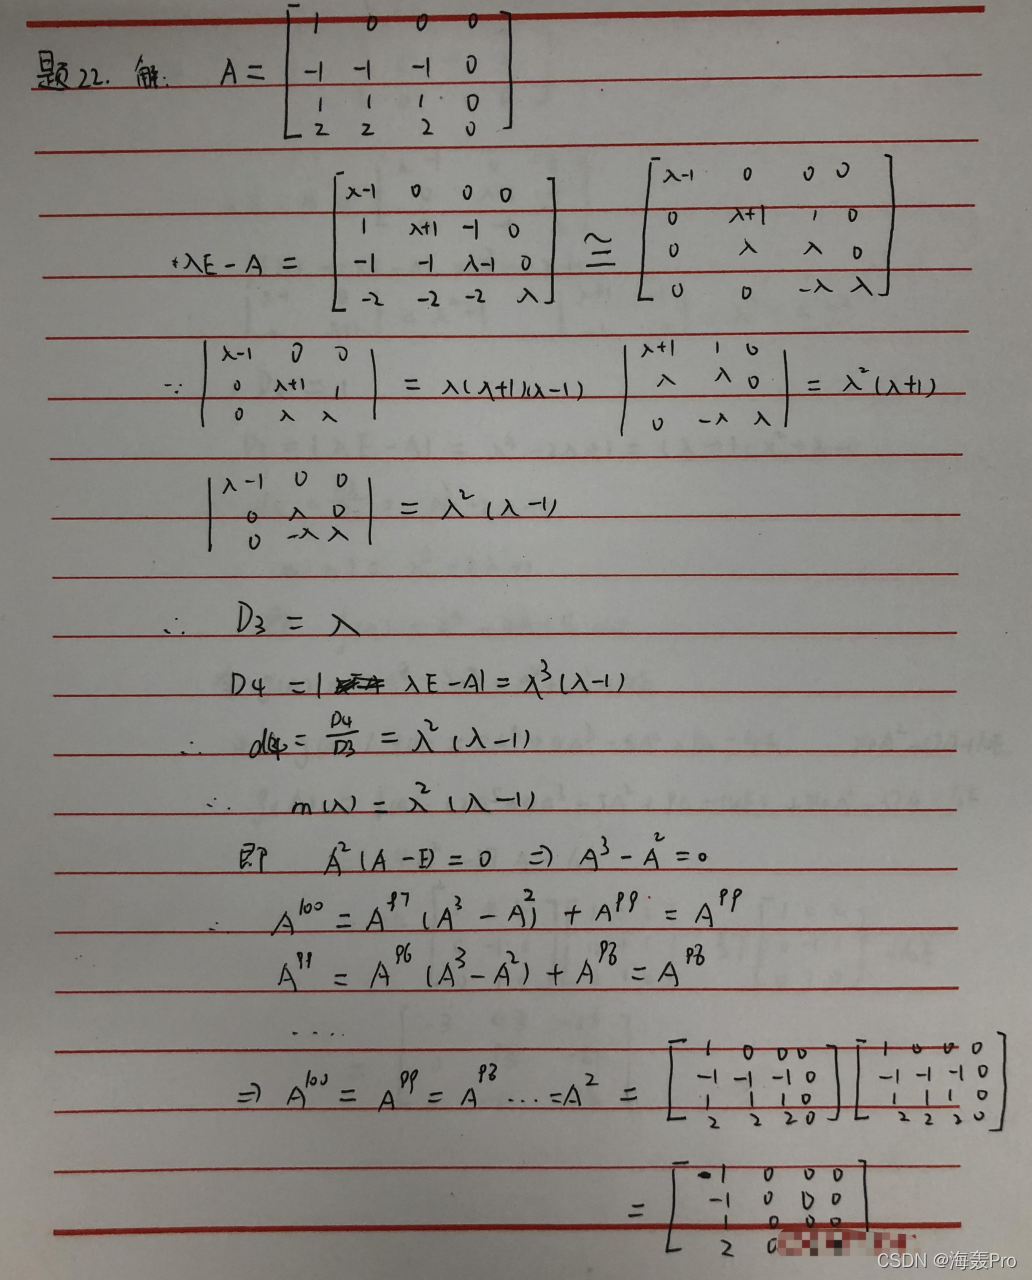 题22. 解: A = [1 0 0 0; -1 -1 -1 0; 1 1 1 0; 2 2 2 0]
λE-A = [λ-1 0 0 0; 1 λ+1 -1 0; -1 -1 λ-1 0; -2 -2 -2 λ] ≅ [λ-1 0 0 0; 0 λ+1 1 0; 0 λ λ 0; 0 0 -λ λ]
∵ |λ-1 0 0; 0 λ+1 1; 0 λ λ| = λ(λ+1)(λ-1) |λ+1 1 0; λ λ 0; 0 -λ λ| = λ²(λ+1)
|λ-1 0 0; 0 λ 0; 0 -λ λ| = λ²(λ-1)
∴ D3 = λ
D4 = |λE-A| = λ³(λ-1)
∴ d4 = D4/D3 = λ²(λ-1)
∴ m(λ) = λ²(λ-1)
即 A²(A-E) = 0 ⇒ A³-A² = 0
∴ A¹⁰⁰ = A⁹⁷(A³-A²) + A⁹⁹ = A⁹⁹
A⁹⁹ = A⁹⁶(A³-A²) + A⁹⁸ = A⁹⁸
....
⇒ A¹⁰⁰ = A⁹⁹ = A⁹⁸ ... = A² = [1 0 0 0; -1 -1 -1 0; 1 1 1 0; 2 2 2 0] [1 0 0 0; -1 -1 -1 0; 1 1 1 0; 2 2 2 0]
= [1 0 0 0; -1 0 0 0; 1 0 0 0; 2 0
CSDN @海轰Pro